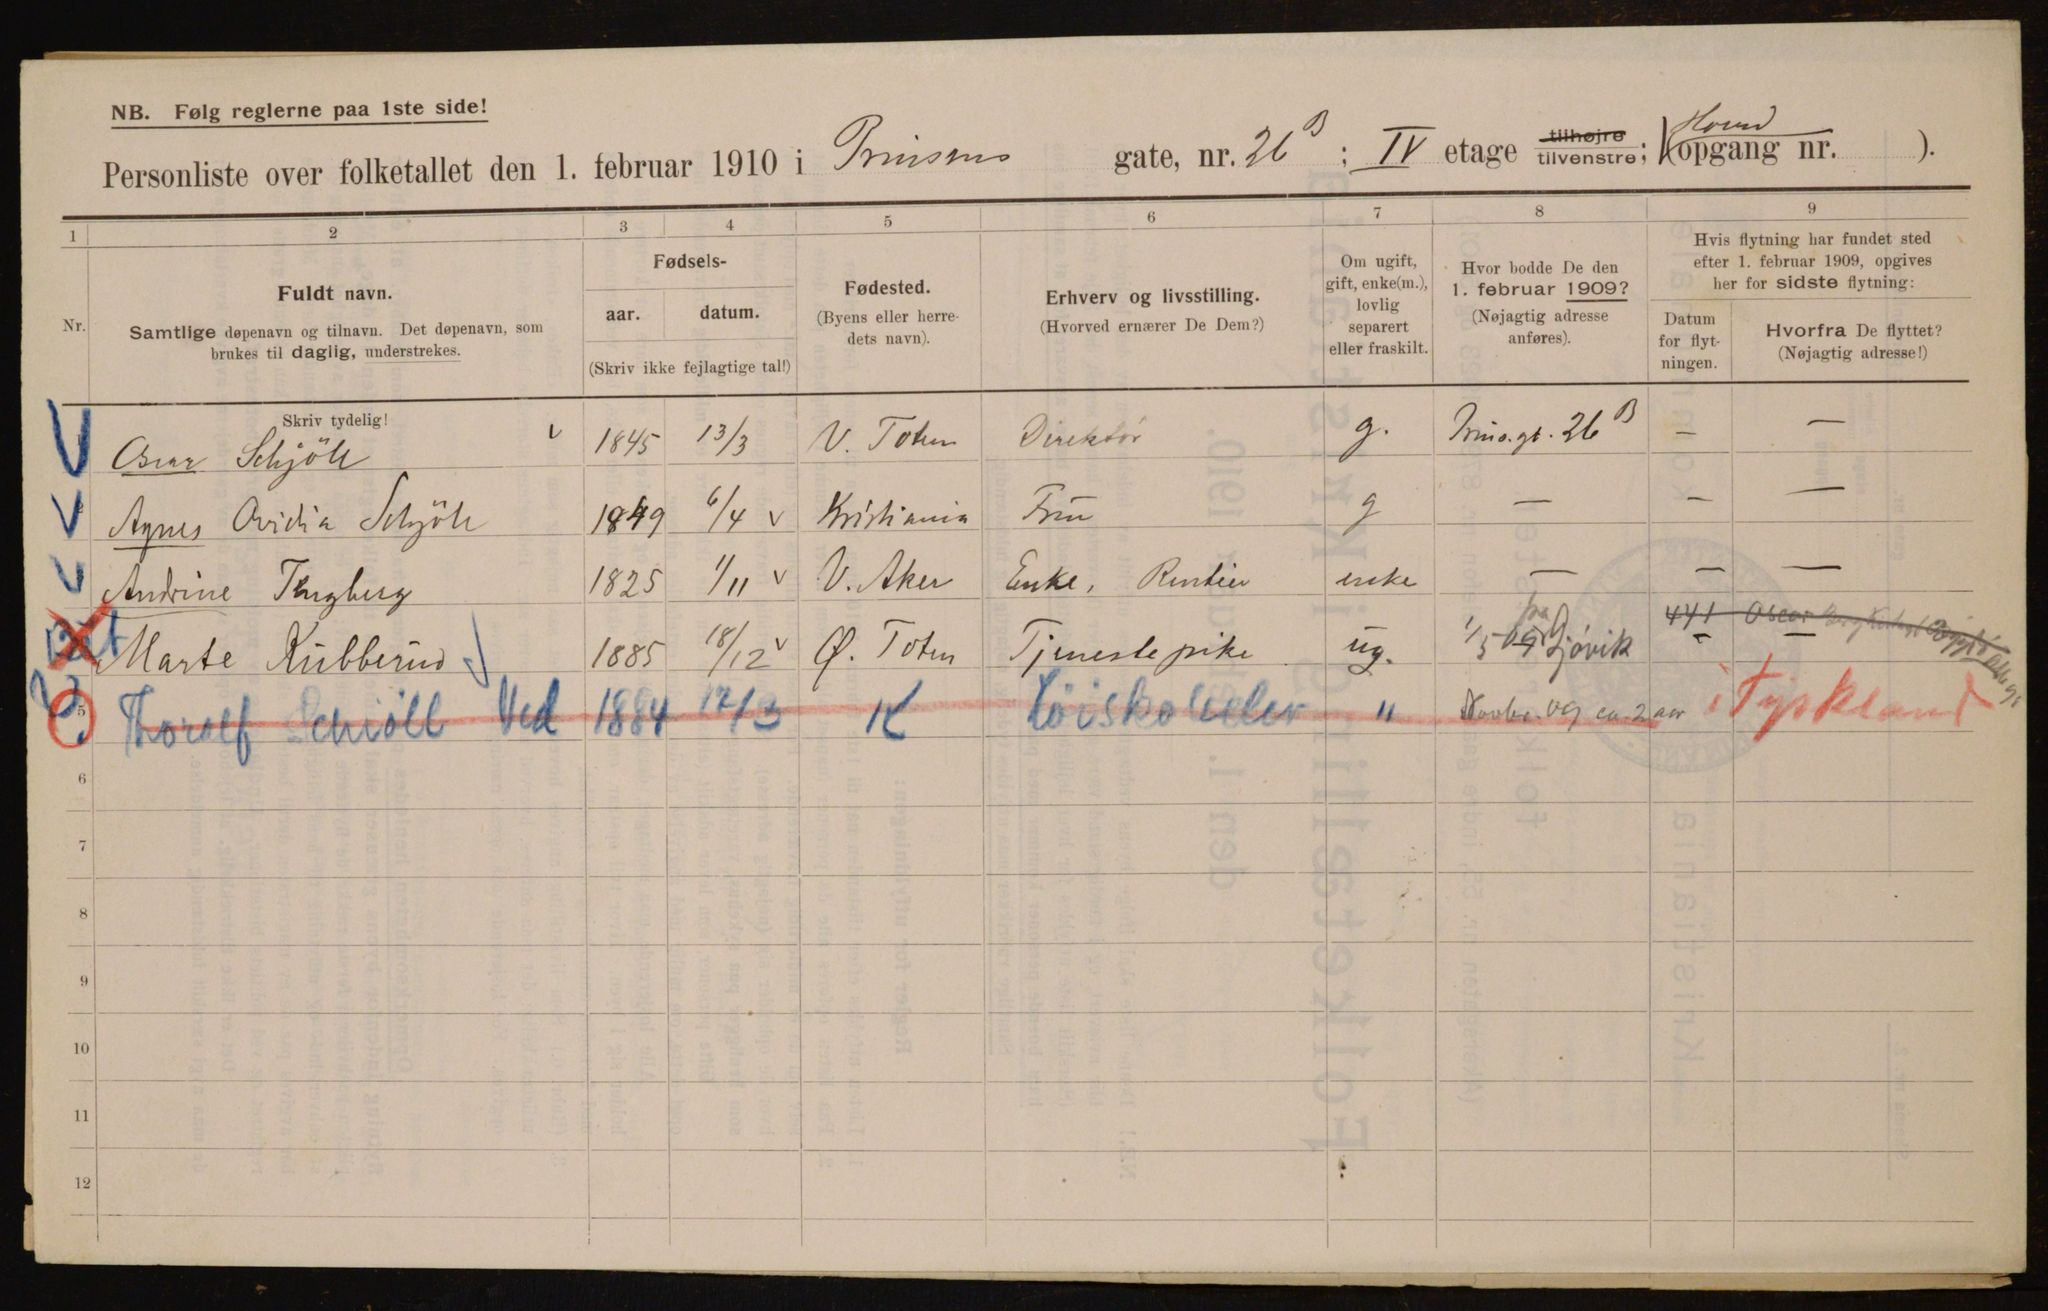 NB. Følg reglerne paa 1ste side!
Personliste over folketallet den 1. februar 1910 i Prinsens gate, nr. 26 B ; IV etage tilhøjre tilvenstre; (Hoved opgang nr. ).
1 2 3 4 5 6 7 8 9
Nr.
Fuldt navn.
Samtlige døpenavn og tilnavn. Det døpenavn, som
brukes til daglig, understrekes.
Fødsels-
aar. datum.
(Skriv ikke fejlagtige tal!)
Fødested.
(Byens eller herre-
dets navn).
Erhverv og livsstilling.
(Hvorved ernærer De Dem?)
Om ugift,
gift, enke(m.),
lovlig
separert
eller fraskilt.
Hvor bodde De den
1. februar 1909?
(Nøjagtig adresse
anføres).
Hvis flytning har fundet sted
efter 1. februar 1909, opgives
her for sidste flytning:
Datum
for flyt-
ningen.
Hvorfra De flyttet?
(Nøjagtig adresse!)
Skriv tydelig!
Oscar Schjöll 1845 13/3 V. Toten Direktör g. Prins.gt. 26 B — —
Agnes Ovidia Schjöll 1849 6/4 Kristiania Fru g — — —
Andrine Engberg 1825 1/11 V. Aker Enke, Rentier enke — — —
Marte Kubberud 1885 18/12 Ø. Toten Tjenestepike ug. 1/5 09 fra Gjövik - — 441 Oscar
5 Thoralf Schiöll Ved 1884 17/3 K " Novbr. 09 ca. 2 aar i Tyskland
6
7
8
9
10
11
12